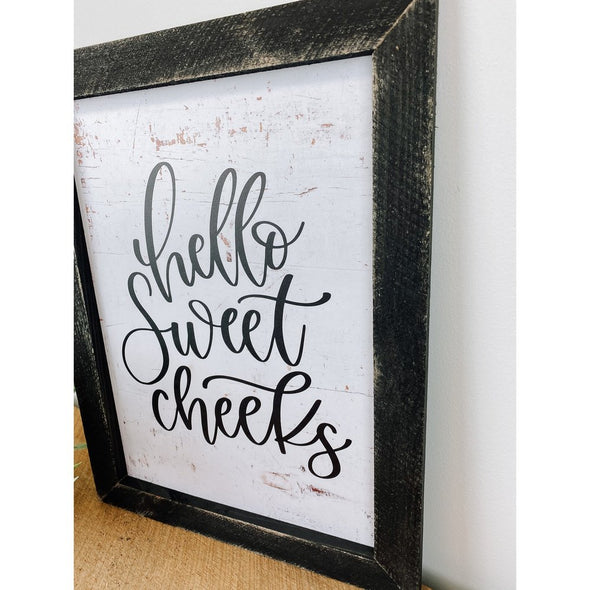 hello
Sweet
cheeks